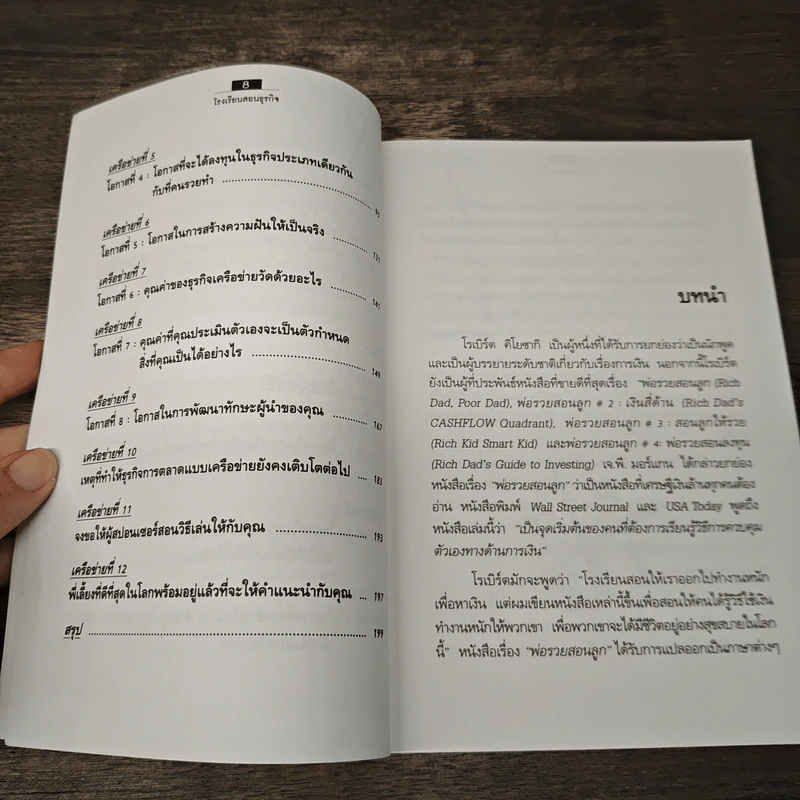 8
โรงเรียนสอนธุรกิจ
เครือข่ายที่ 5
โอกาสที่ 4 : โอกาสที่จะได้ลงทุนในธุรกิจประเภทเดียวกัน
กับที่คนรวยทำ ........................................
เครือข่ายที่ 6
โอกาสที่ 5 : โอกาสในการสร้างความฝันให้เป็นจริง ............ 131
เครือข่ายที่ 7
โอกาสที่ 6 : คุณค่าของธุรกิจเครือข่ายวัดด้วยอะไร ............ 141
เครือข่ายที่ 8
โอกาสที่ 7 : คุณค่าที่คุณประเมินตัวเองจะเป็นตัวกำหนด
สิ่งที่คุณเป็นได้อย่างไร ............................ 149
เครือข่ายที่ 9
โอกาสที่ 8 : โอกาสในการพัฒนาทักษะผู้นำของคุณ ............ 167
เครือข่ายที่ 10
เหตุที่ทำให้ธุรกิจการตลาดแบบเครือข่ายยังคงเติบโตต่อไป ...... 183
เครือข่ายที่ 11
จงขอให้ผู้สปอนเซอร์สอนวิธีเล่นให้กับคุณ ........................ 193
เครือข่ายที่ 12
พี่เลี้ยงที่ดีที่สุดในโลกพร้อมอยู่แล้วที่จะให้คำแนะนำกับคุณ ... 197
สรุป ........................................................................ 199
บทนำ
โรเบิร์ต คิโยซากิ เป็นผู้หนึ่งที่ได้รับการยกย่องว่าเป็นนักพูด
และเป็นผู้บรรยายระดับชาติเกี่ยวกับเรื่องการเงิน นอกจากนี้โรเบิร์ต
ยังเป็นผู้ที่ประพันธ์หนังสือที่ขายดีที่สุดเรื่อง "พ่อรวยสอนลูก (Rich
Dad, Poor Dad), พ่อรวยสอนลูก # 2 : เงินสี่ด้าน (Rich Dad's
CASHFLOW Quadrant), พ่อรวยสอนลูก # 3 : สอนลูกให้รวย
(Rich Kid Smart Kid) และพ่อรวยสอนลูก # 4: พ่อรวยสอนลงทุน
(Rich Dad's Guide to Investing) เจ.พี. มอร์แกน ได้กล่าวยกย่อง
หนังสือเรื่อง "พ่อรวยสอนลูก" ว่าเป็นหนังสือที่เศรษฐีเงินล้านทุกคนต้อง
อ่าน หนังสือพิมพ์ Wall Street Journal และ USA Today พูดถึง
หนังสือเล่มนี้ว่า "เป็นจุดเริ่มต้นของคนที่ต้องการเรียนรู้วิธีการควบคุม
ตัวเองทางด้านการเงิน"
โรเบิร์ตมักจะพูดว่า "โรงเรียนสอนให้เราออกไปทำงานหนัก
เพื่อหาเงิน แต่ผมเขียนหนังสือเหล่านี้ขึ้นเพื่อสอนให้คนได้รู้วิธีใช้เงิน
ทำงานหนักให้พวกเขา เพื่อพวกเขาจะได้มีชีวิตอยู่อย่างสุขสบายในโลก
นี้" หนังสือเรื่อง "พ่อรวยสอนลูก" ได้รับการแปลออกเป็นภาษาต่างๆ